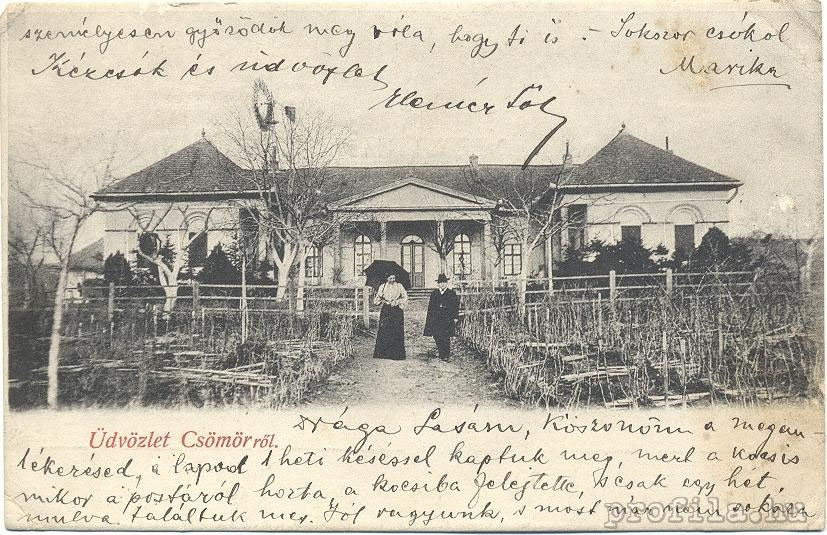 személyesen győződök meg róla, hogy ti is - Sokszor csókol
Kézcsók és üdvözlet Marika
Üdvözlet Csömörről.
Drága Sasám, Köszönöm a megem-
lékezésed, a lapod 1 heti késéssel kaptuk meg, mert a kocsis
mikor a postáról hozta, a kocsiba felejtette, s csak egy hét
mulva találtuk meg. Jól vagyunk, s most már nem sokára
profila.hu